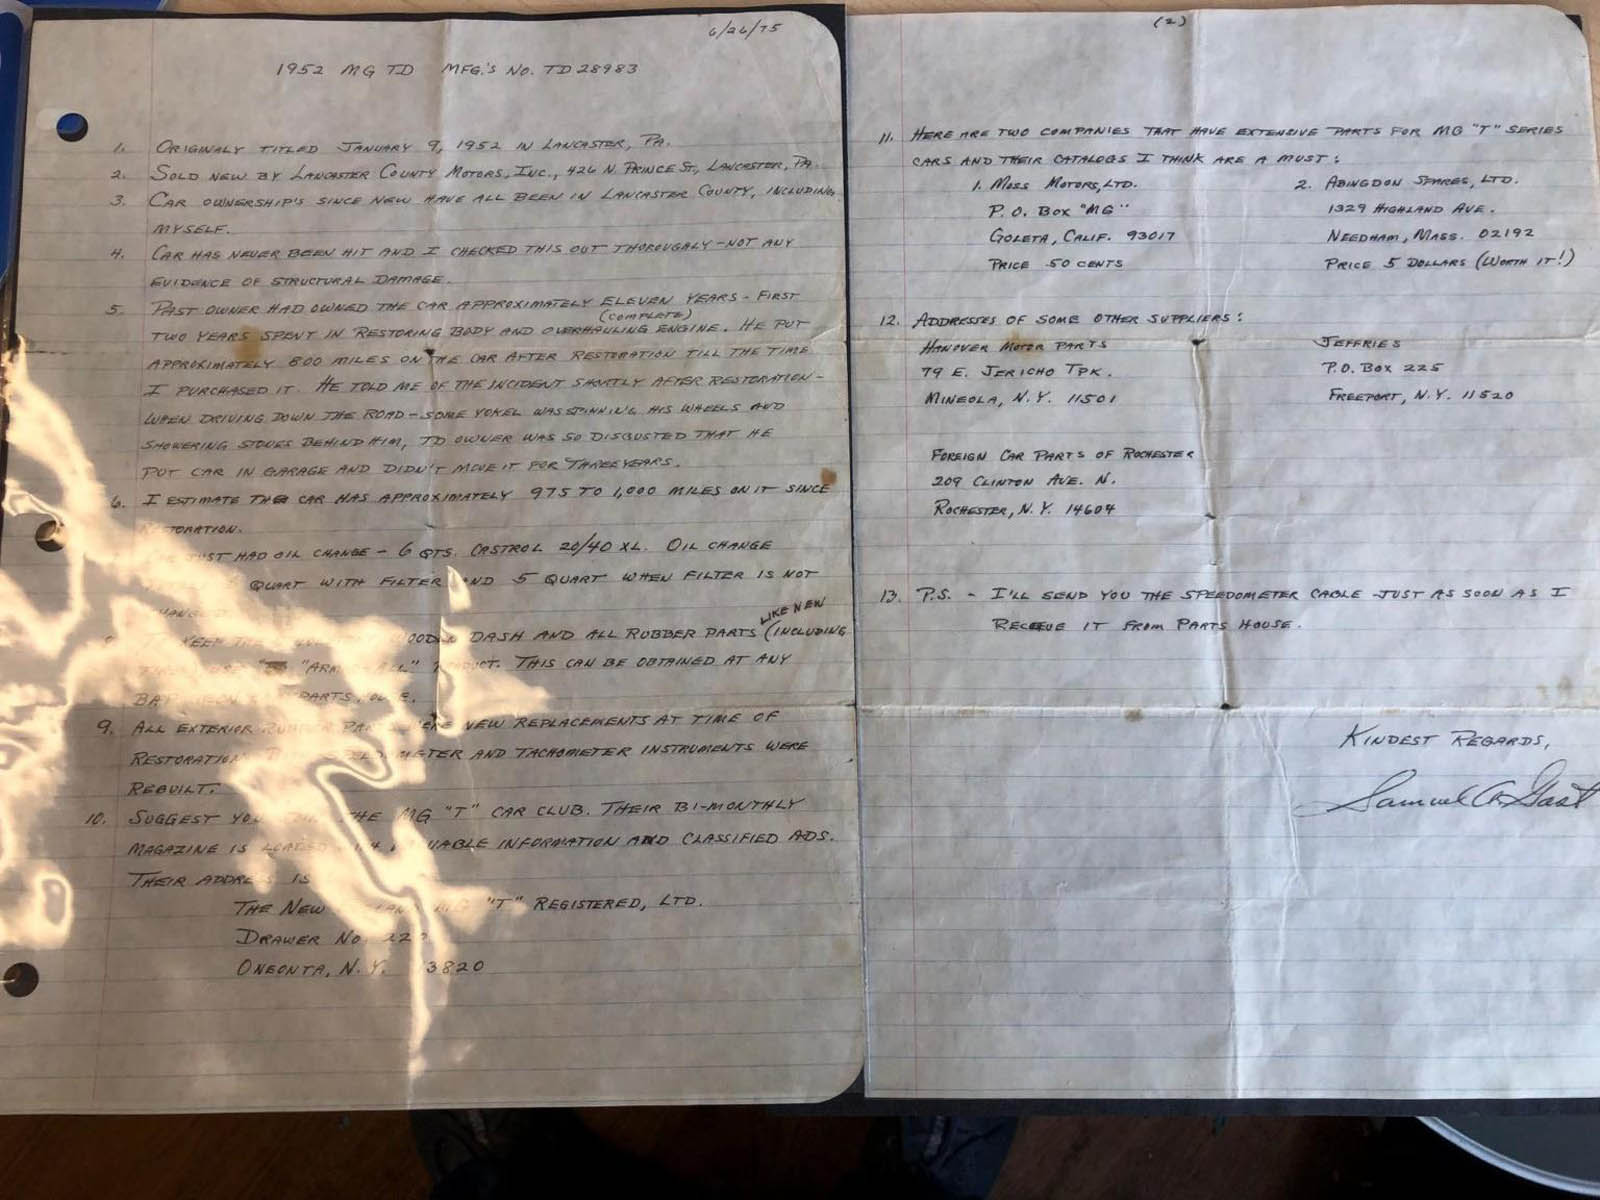 6/26/75
1952 MG TD MFG.'S NO. TD 28983
1. ORIGINALY TITLED JANUARY 9, 1952 IN LANCASTER, PA.
2. SOLD NEW BY LANCASTER COUNTY MOTORS, INC., 426 N. PRINCE ST., LANCASTER, PA.
3. CAR OWNERSHIP'S SINCE NEW HAVE ALL BEEN IN LANCASTER COUNTY, INCLUDING
MYSELF.
4. CAR HAS NEVER BEEN HIT AND I CHECKED THIS OUT THOROUGALY - NOT ANY
EVIDENCE OF STRUCTURAL DAMAGE.
5. PAST OWNER HAD OWNED THE CAR APPROXIMATELY ELEVEN YEARS - FIRST
(COMPLETE)
TWO YEARS SPENT IN RESTORING BODY AND OVERHAULING ENGINE. HE PUT
APPROXIMATELY 800 MILES ON THE CAR AFTER RESTORATION TILL THE TIME
I PURCHASED IT. HE TOLD ME OF THE INCIDENT SHORTLY AFTER RESTORATION -
WHEN DRIVING DOWN THE ROAD - SOME YOKEL WAS SPINNING HIS WHEELS AND
SHOWERING STONES BEHIND HIM, TD OWNER WAS SO DISGUSTED THAT HE
PUT CAR IN GARAGE AND DIDN'T MOVE IT FOR THREE YEARS.
6. I ESTIMATE THE CAR HAS APPROXIMATELY 975 TO 1,000 MILES ON IT SINCE
RESTORATION.
JUST HAD OIL CHANGE - 6 QTS. CASTROL 20/40 XL. OIL CHANGE
QUART WITH FILTER AND 5 QUART WHEN FILTER IS NOT
CHANGED
LIKE NEW
KEEP THE WOODEN DASH AND ALL RUBBER PARTS (INCLUDING
"ARM ALL" PRODUCT. THIS CAN BE OBTAINED AT ANY
PARTS HOUSE.
9. ALL EXTERIOR RUBBER PARTS WERE NEW REPLACEMENTS AT TIME OF
RESTORATION SPEEDOMETER AND TACHOMETER INSTRUMENTS WERE
REBUILT.
10. SUGGEST YOU JOIN THE MG "T" CAR CLUB. THEIR BI-MONTHLY
MAGAZINE IS LOADED WITH VALUABLE INFORMATION AND CLASSIFIED ADS.
THEIR ADDRESS IS
THE NEW ENGLAND MG "T" REGISTERED, LTD.
DRAWER NO. 220
ONEONTA, N.Y. 13820
(2)
11. HERE ARE TWO COMPANIES THAT HAVE EXTENSIVE PARTS FOR MG "T" SERIES
CARS AND THEIR CATALOGS I THINK ARE A MUST:
1. MOSS MOTORS, LTD.
P.O. BOX "MG"
GOLETA, CALIF. 93017
PRICE 50 CENTS
2. ABINGDON SPARES, LTD.
1329 HIGHLAND AVE.
NEEDHAM, MASS. 02192
PRICE 5 DOLLARS (WORTH IT!)
12. ADDRESSES OF SOME OTHER SUPPLIERS:
HANOVER MOTOR PARTS
79 E. JERICHO TPK.
MINEOLA, N.Y. 11501
JEFFRIES
P.O. BOX 225
FREEPORT, N.Y. 11520
FOREIGN CAR PARTS OF ROCHESTER
209 CLINTON AVE. N.
ROCHESTER, N.Y. 14604
13. P.S. - I'LL SEND YOU THE SPEEDOMETER CABLE JUST AS SOON AS I
RECEEVE IT FROM PARTS HOUSE.
KINDEST REGARDS,
Samuel A. Gast